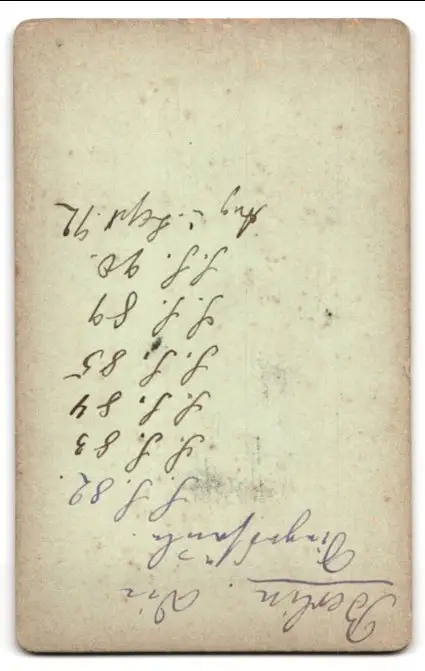 Berlin. Die
Siegessäule.
S. S. 82.
S. S. 83
S. S. 84
S. S. 85
S. S. 89
S. S. 90.
Aug u. Sept. 92